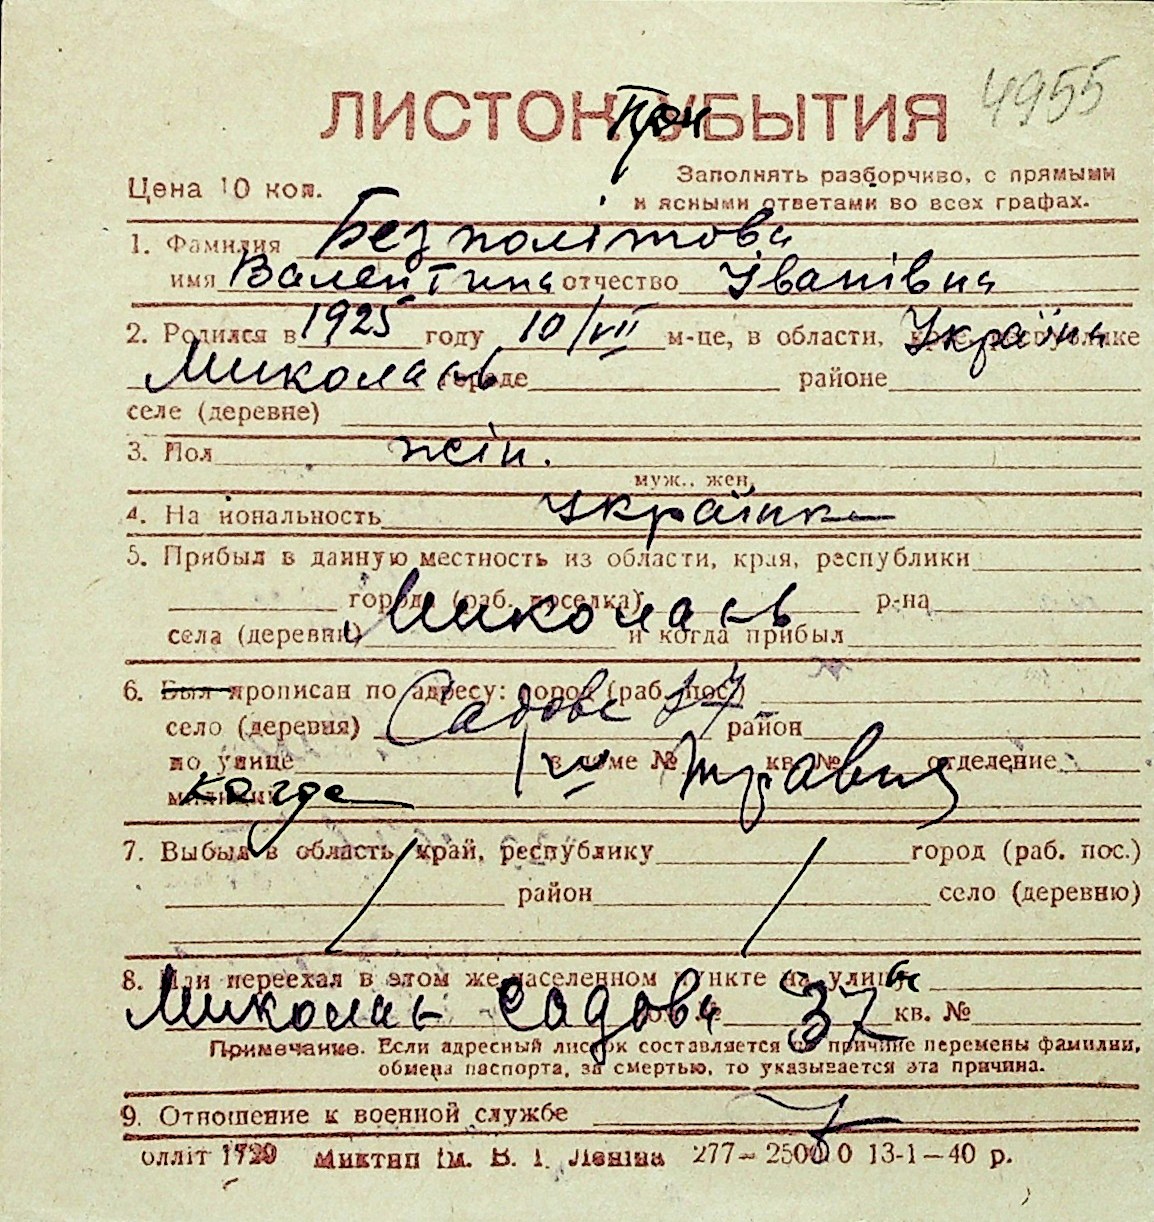 4955
ЛИСТОК При УБЫТИЯ
Цена 10 коп.
Заполнять разборчиво, с прямыми
и ясными ответами во всех графах.
1. Фамилия Безполітова
имя Валентина отчество Іванівна
2. Родился в 1925 году 10/VII м-це, в области, крае, республике Україна
Миколаєв городе районе
селе (деревне)
3. Пол жін.
муж., жен.
4. На иональность Українка
5. Прибыл в данную местность из области, края, республики
города (раб. поселка) Миколаєв р-на
села (деревни) и когда прибыл
6. Был прописан по адресу: город (раб. пос.)
село (деревня) Садова 37 район
по улице в доме № кв. № отделение
милиции когда Травня
7. Выбыл в область, край, республику город (раб. пос.)
район село (деревню)
8. Или переехал в этом же населенном пункте на улицу
Миколаїв Садова 37 кв. №
Примечание. Если адресный листок составляется по причине перемены фамилии,
обмена паспорта, за смертью, то указывается эта причина.
9. Отношение к военной службе
олліт 1729 Миктип ім. В. І. Леніна 277—25000 13-1—40 р.